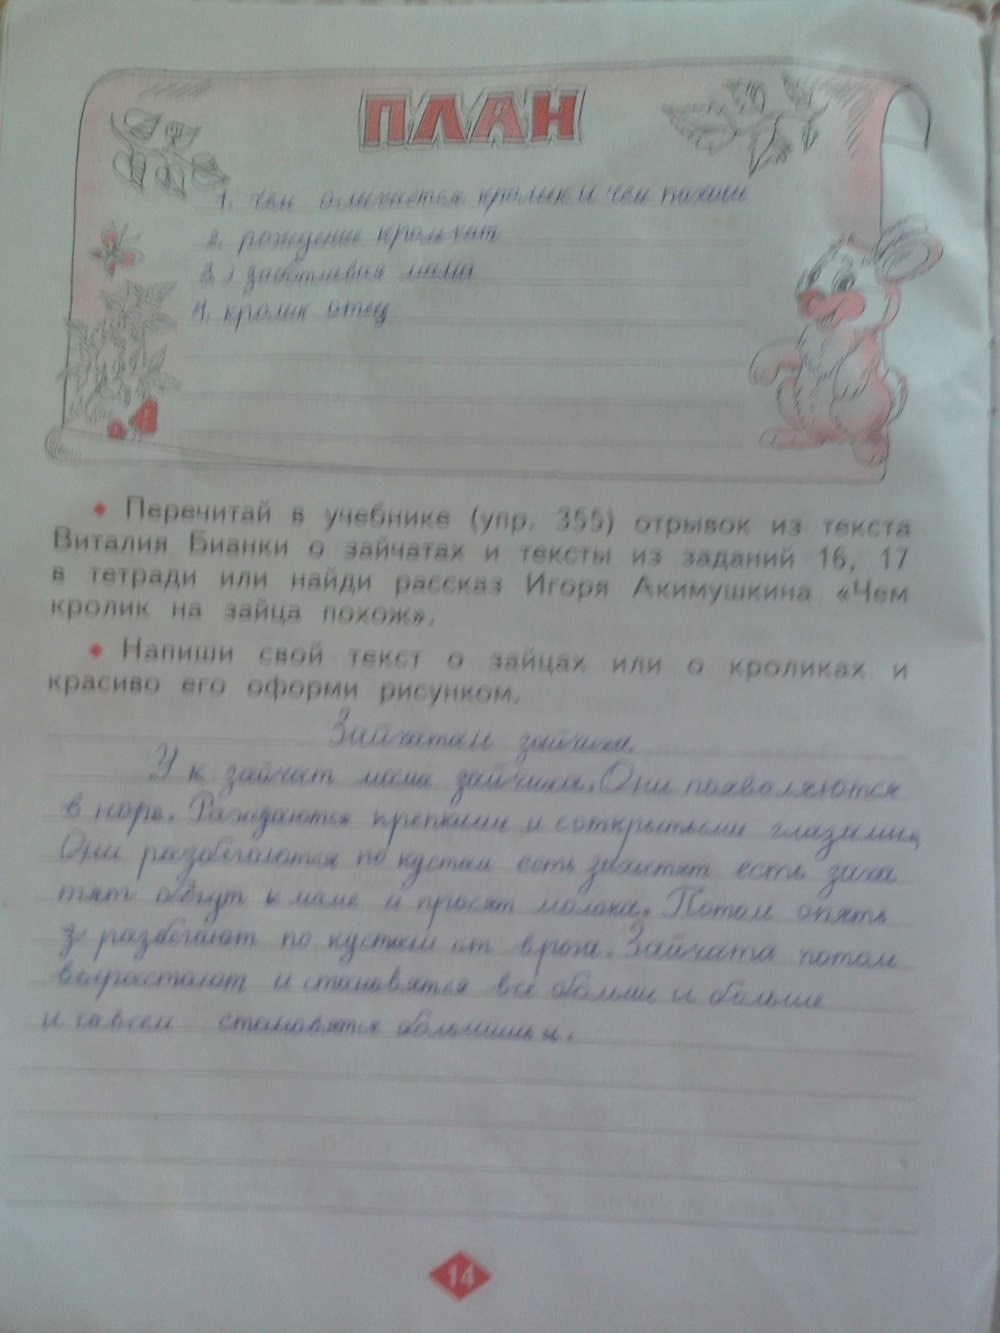 ПЛАН
1. Чем отличается кролик и чем похож
2. рождение крольчат
3. заботливая мама
4. кролик отец
• Перечитай в учебнике (упр. 355) отрывок из текста
Виталия Бианки о зайчатах и тексты из заданий 16, 17
в тетради или найди рассказ Игоря Акимушкина «Чем
кролик на зайца похож».
• Напиши свой текст о зайцах или о кроликах и
красиво его оформи рисунком.
зайчиха.
У зайчат мама зайчиха. Они появляются
в норе. Раждаются крепкими и соткрытыми глазами.
Они разбегаются по кустам есть захотят есть заха
тят бегут к маме и просят молока. Потом опять
разбегают по кустам от врага. Зайчата потом
возростают и становятся все больши и больше
и савсем становятся большими.
14